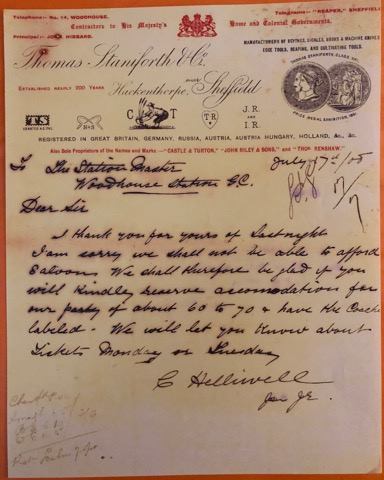 Telephone:- No. 14, WOODHOUSE.
Telegrams:- "REAPER," SHEFFIELD
Contractors to His Majesty's Home and Colonial Governments.
Principal:- JOHN HIBBARD.
MANUFACTURERS OF SCYTHES, SICKLES, HOOKS & MACHINE KNIVES
EDGE TOOLS, REAPING, AND CULTIVATING TOOLS.
Thomas Staniforth & Co.
ESTABLISHED NEARLY 200 YEARS
Hackenthorpe, Sheffield
TS
H+S
C T
T·R
J.R.
and
I.R.
PRIZE MEDAL EXHIBITION, 1851
REGISTERED IN GREAT BRITAIN, GERMANY, RUSSIA, AUSTRIA, AUSTRIA HUNGARY, HOLLAND, &c., &c.
Also Sole Proprietors of the Names and Marks:- "CASTLE & TURTON," "JOHN RILEY & SONS," and "THOS RENSHAW."
To The Station Master
July 17th/05
Woodhouse Station G.C.
Dear Sir
I thank you for yours of Last night
I am sorry we shall not be able to afford
Saloons We shall therefore be glad if you
will Kindly reserve accomodation for
our party of about 60 to 70 & have the Coache
labeled. - We will let you know about
Tickets Monday or Tuesday
C Helliwell